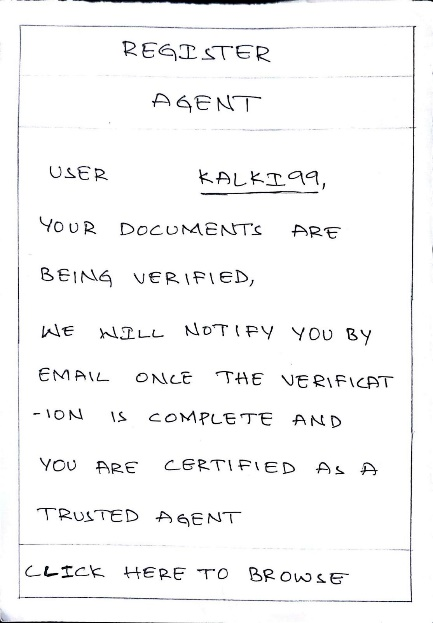 REGISTER
AGENT
USER KALKI99,
YOUR DOCUMENTS ARE
BEING VERIFIED,
WE WILL NOTIFY YOU BY
EMAIL ONCE THE VERIFICAT
-ION IS COMPLETE AND
YOU ARE CERTIFIED AS A
TRUSTED AGENT
CLICK HERE TO BROWSE